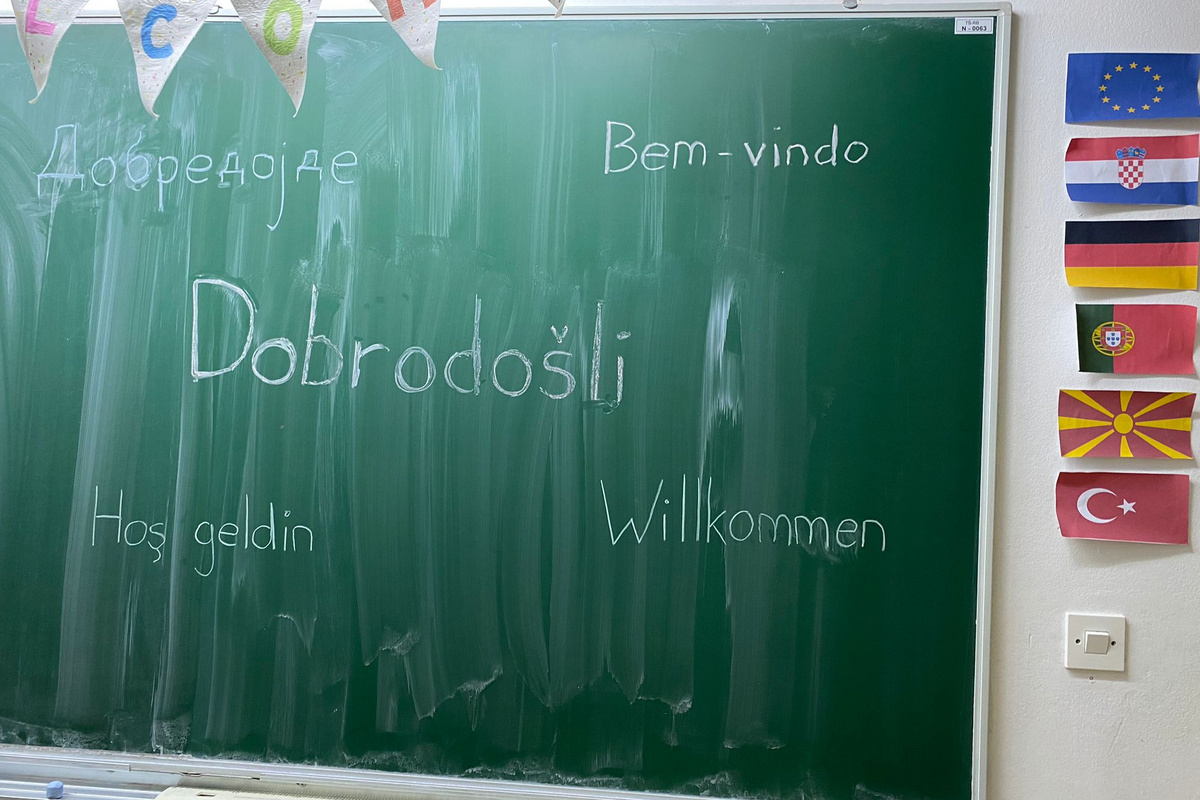 L C O
N - 0063
Добредојде
Bem-vindo
Dobrodošli
Hoş geldin
Willkommen